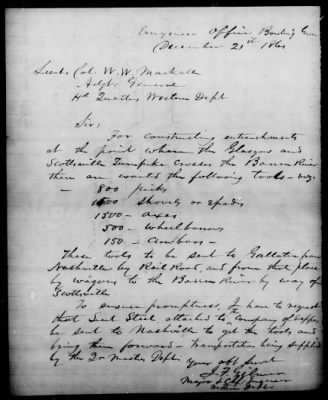 Engineer Office Bowling Green
December 21st 1861
Lieut Col. W. W. Mackall
Adjt General
Hd Quarters Western Dept
Sir:
For constructing entrenchments
at the point where the Glasgow and
Scottsville Turnpike crosses the Barren River
there are wanted the following tools - viz
800 picks
1500 shovels or spades
1500 - axes
500 - wheelbarrows
150 - Crowbars -
These tools to be sent to Gallatin from
Nashville by Rail Road, and from that place
by wagons to the Barren River by way of
Scottsville
To ensure promptness, I have to request
that Lieut Steel attached to Company of Sappers
be sent to Nashville to get the tools and
bring them forward - Transportation being supplied
by the Qr Master Dept.
Your obt Servt
J. F. Gilmer
Major & Chf Engineer
Western Dept